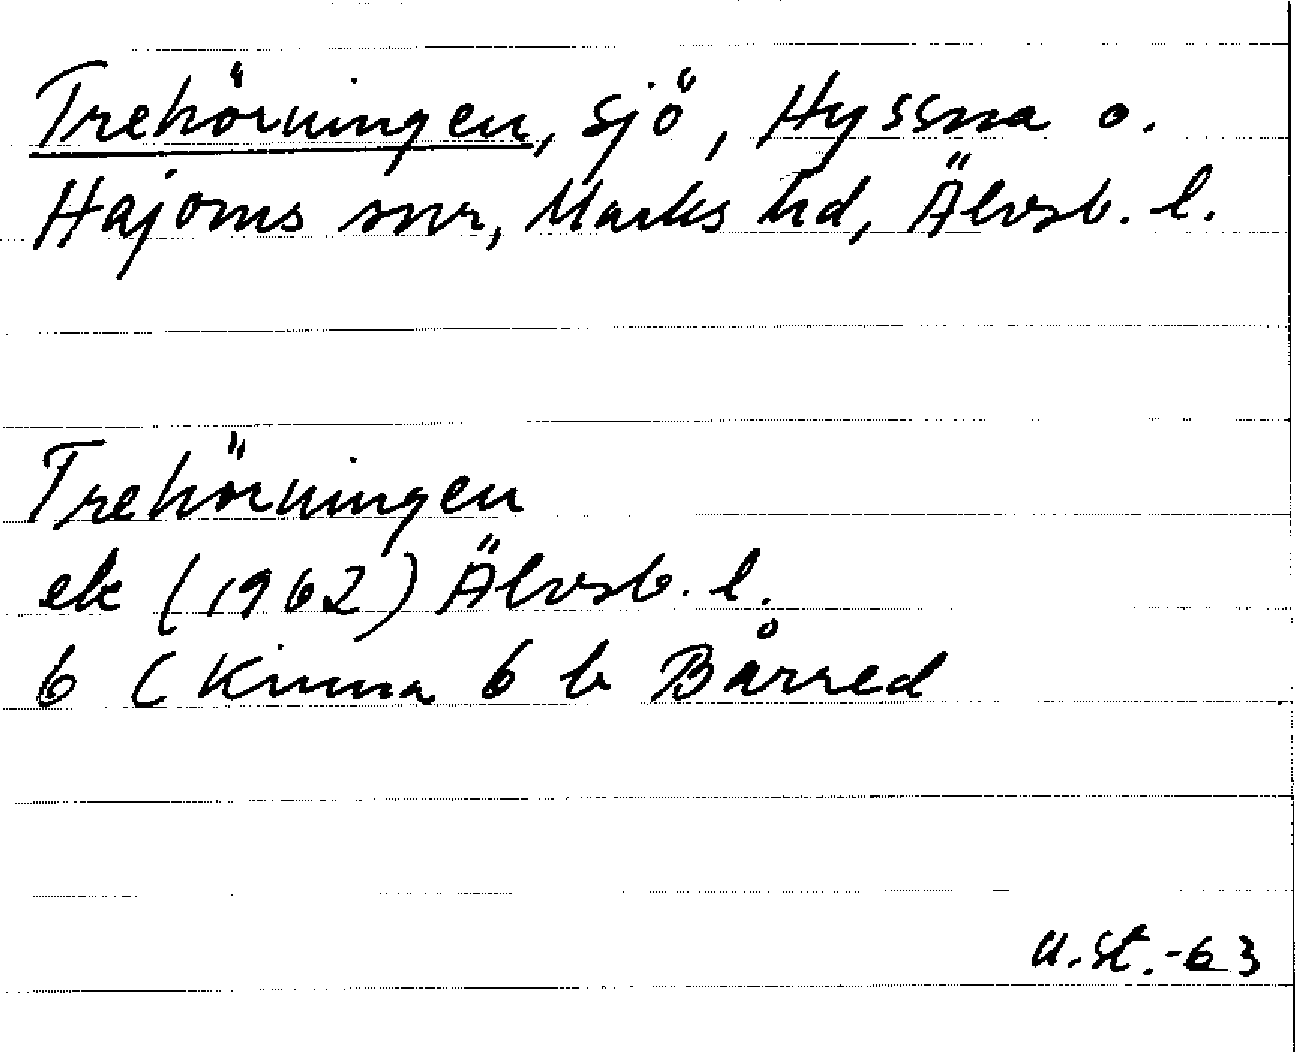 Trehörningen, sjö, Hyssna o.
Hajoms snr, Marks hd, Älvsb. l.
Trehörningen
ek (1962) Älvsb. l.
6 C Kinna 6 b Bårred
U.St.-63